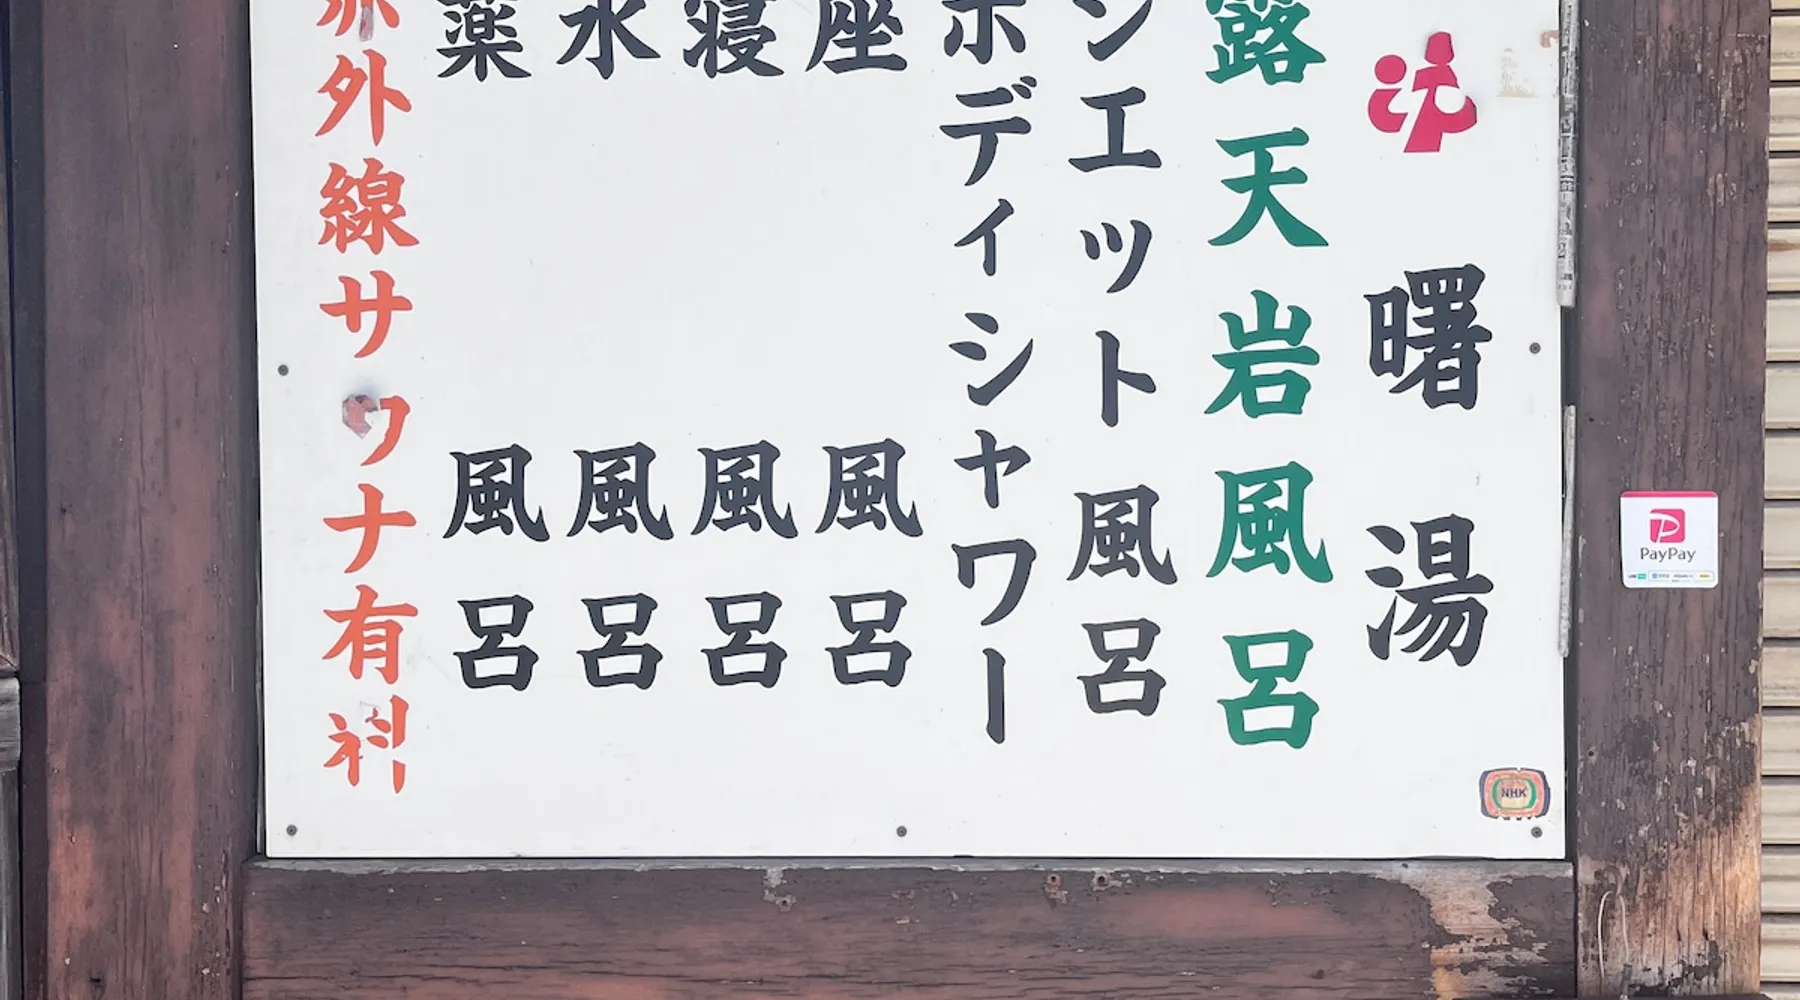 曙湯
露天岩風呂
ジエット風呂
ボディシャワー
座風呂
寝風呂
水風呂
薬風呂
赤外線サウナ有料
PayPay
NHK